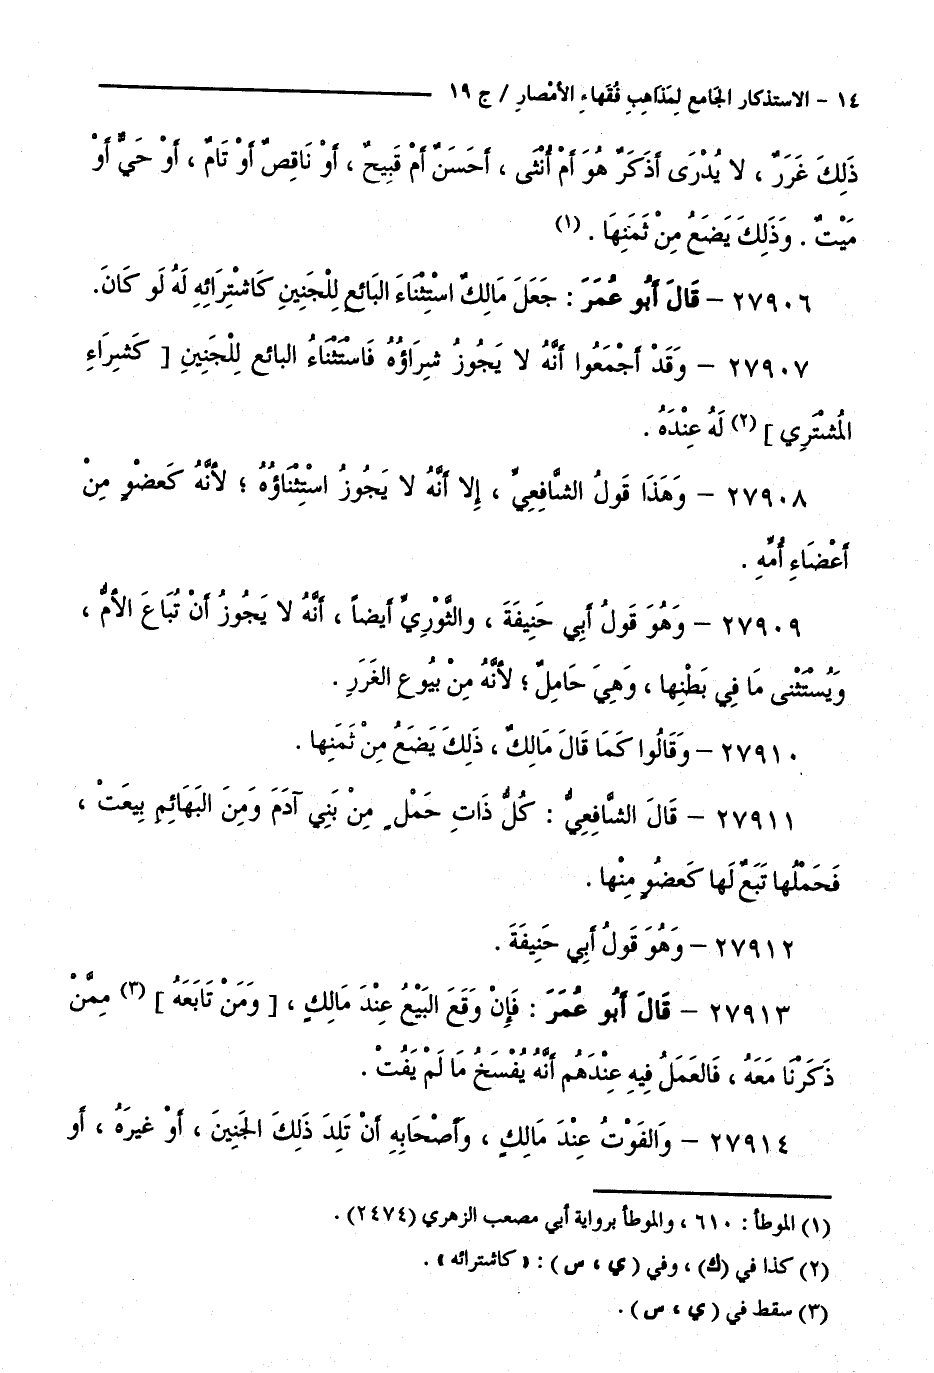 ١٤ - الاستذكار الجَامع لِمَذَاهِبِ فُقَهاءِ الأمْصارِ / ج ١٩
ذَلِكَ غَرَرٌ ، لا يُدْرَى أذَكَرٌ هُوَ أمْ أُنْثَى ، أحَسَنٌ أمْ قَبِيحٌ ، أوْ نَاقِصٌ أوْ تَامٌ ، أوْ حَيٌّ أوْ
مَيْتٌ . وَذَلِكَ يَضَعُ مِنْ ثَمَنِهَا . (١)
٢٧٩٠٦ - قَالَ أَبُو عُمَرَ : جَعَلَ مَالِكٌ اسْتِثْنَاءَ البَائعِ لِلْجَنِينِ كَاشْتِرَائِهِ لَهُ لَو كَانَ.
٢٧٩٠٧ - وَقَدْ أجْمَعُوا أنَّهُ لا يَجُوزُ شِرَاؤُهُ فَاسْتَثْنَاءُ البائع لِلْجَنِينِ [ كَشِرَاءِ
المُشْتَرِي ] (٢) لَهُ عِنْدَهُ .
٢٧٩٠٨ - وَهَذَا قَولُ الشَّافِعِيِّ ، إِلا أنَّهُ لا يَجُوزُ اسْتِثْنَاؤُهُ ؛ لأنَّهُ كَعضْوٍ مِنْ
أعْضَاءِ أُمِّهِ .
٢٧٩٠٩ - وَهُوَ قَولُ أبِي حَنِيفَةَ ، والثَّوْرِيِّ أيضاً ، أنَّهُ لا يَجُوزُ أنْ تُبَاعَ الأمُّ ،
وَيُسْتَثْنى مَا فِي بَطْنِها ، وَهِيَ حَامِلٌ ؛ لأنَّهُ مِنْ بيُوعِ الغَرَرِ .
٢٧٩١٠ - وَقَالُوا كَمَا قَالَ مَالِكٌ ، ذَلِكَ يَضَعُ مِنْ ثَمَنِها .
٢٧٩١١ - قَالَ الشَّافِعِيُّ : كُلُّ ذَاتِ حَمْلٍ مِنْ بَنِي آدَمَ وَمِنَ البَهَائِمِ بِيعَتْ ،
فَحَمْلُها تَبَعٌ لَها كَعضُوٍ مِنْها .
٢٧٩١٢ - وَهُوَ قَولُ أبِي حَنِيفَةَ .
٢٧٩١٣ - قَالَ أَبُو عُمَرَ : فَإِنْ وَقَعَ البَيْعُ عِنْدَ مَالِكٍ ، [ وَمَنْ تَابَعَهُ ] (٣) مِمَّنْ
ذَكَرْنَا مَعَهُ ، فَالعَمَلُ فِيهِ عِنْدَهُم أنَّهُ يُفْسَخُ مَا لَمْ يَفُتْ .
٢٧٩١٤ - وَالفَوْتُ عِنْدَ مَالِكٍ ، وَأصْحَابِهِ أنْ تَلِدَ ذَلِكَ الجَنِينَ ، أوْ غيرَهُ ، أو
(١) الموطأ : ٦١٠ ، والموطأ برواية أبي مصعب الزهري (٢٤٧٤) .
(٢) كذا في (ك) ، وفي ( ي ، س ) : « كاشترائه » .
(٣) سقط في ( ي ، س ) .